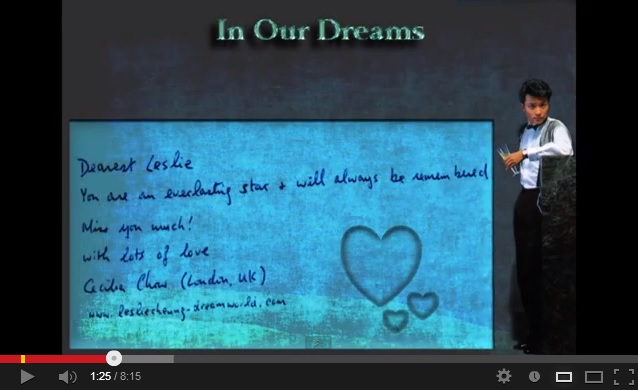 In Our Dreams
Dearest Leslie
You are an everlasting star & will always be remembered
Miss you much!
with lots of love
Cecilia Chow (London, UK)
www.lesliecheung-dreamworld.com
1:25 / 8:15